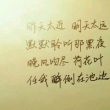 明天太近 明天太远
默默聆听那黑夜
晚风吻尽 荷花叶
任我醉倒在池边